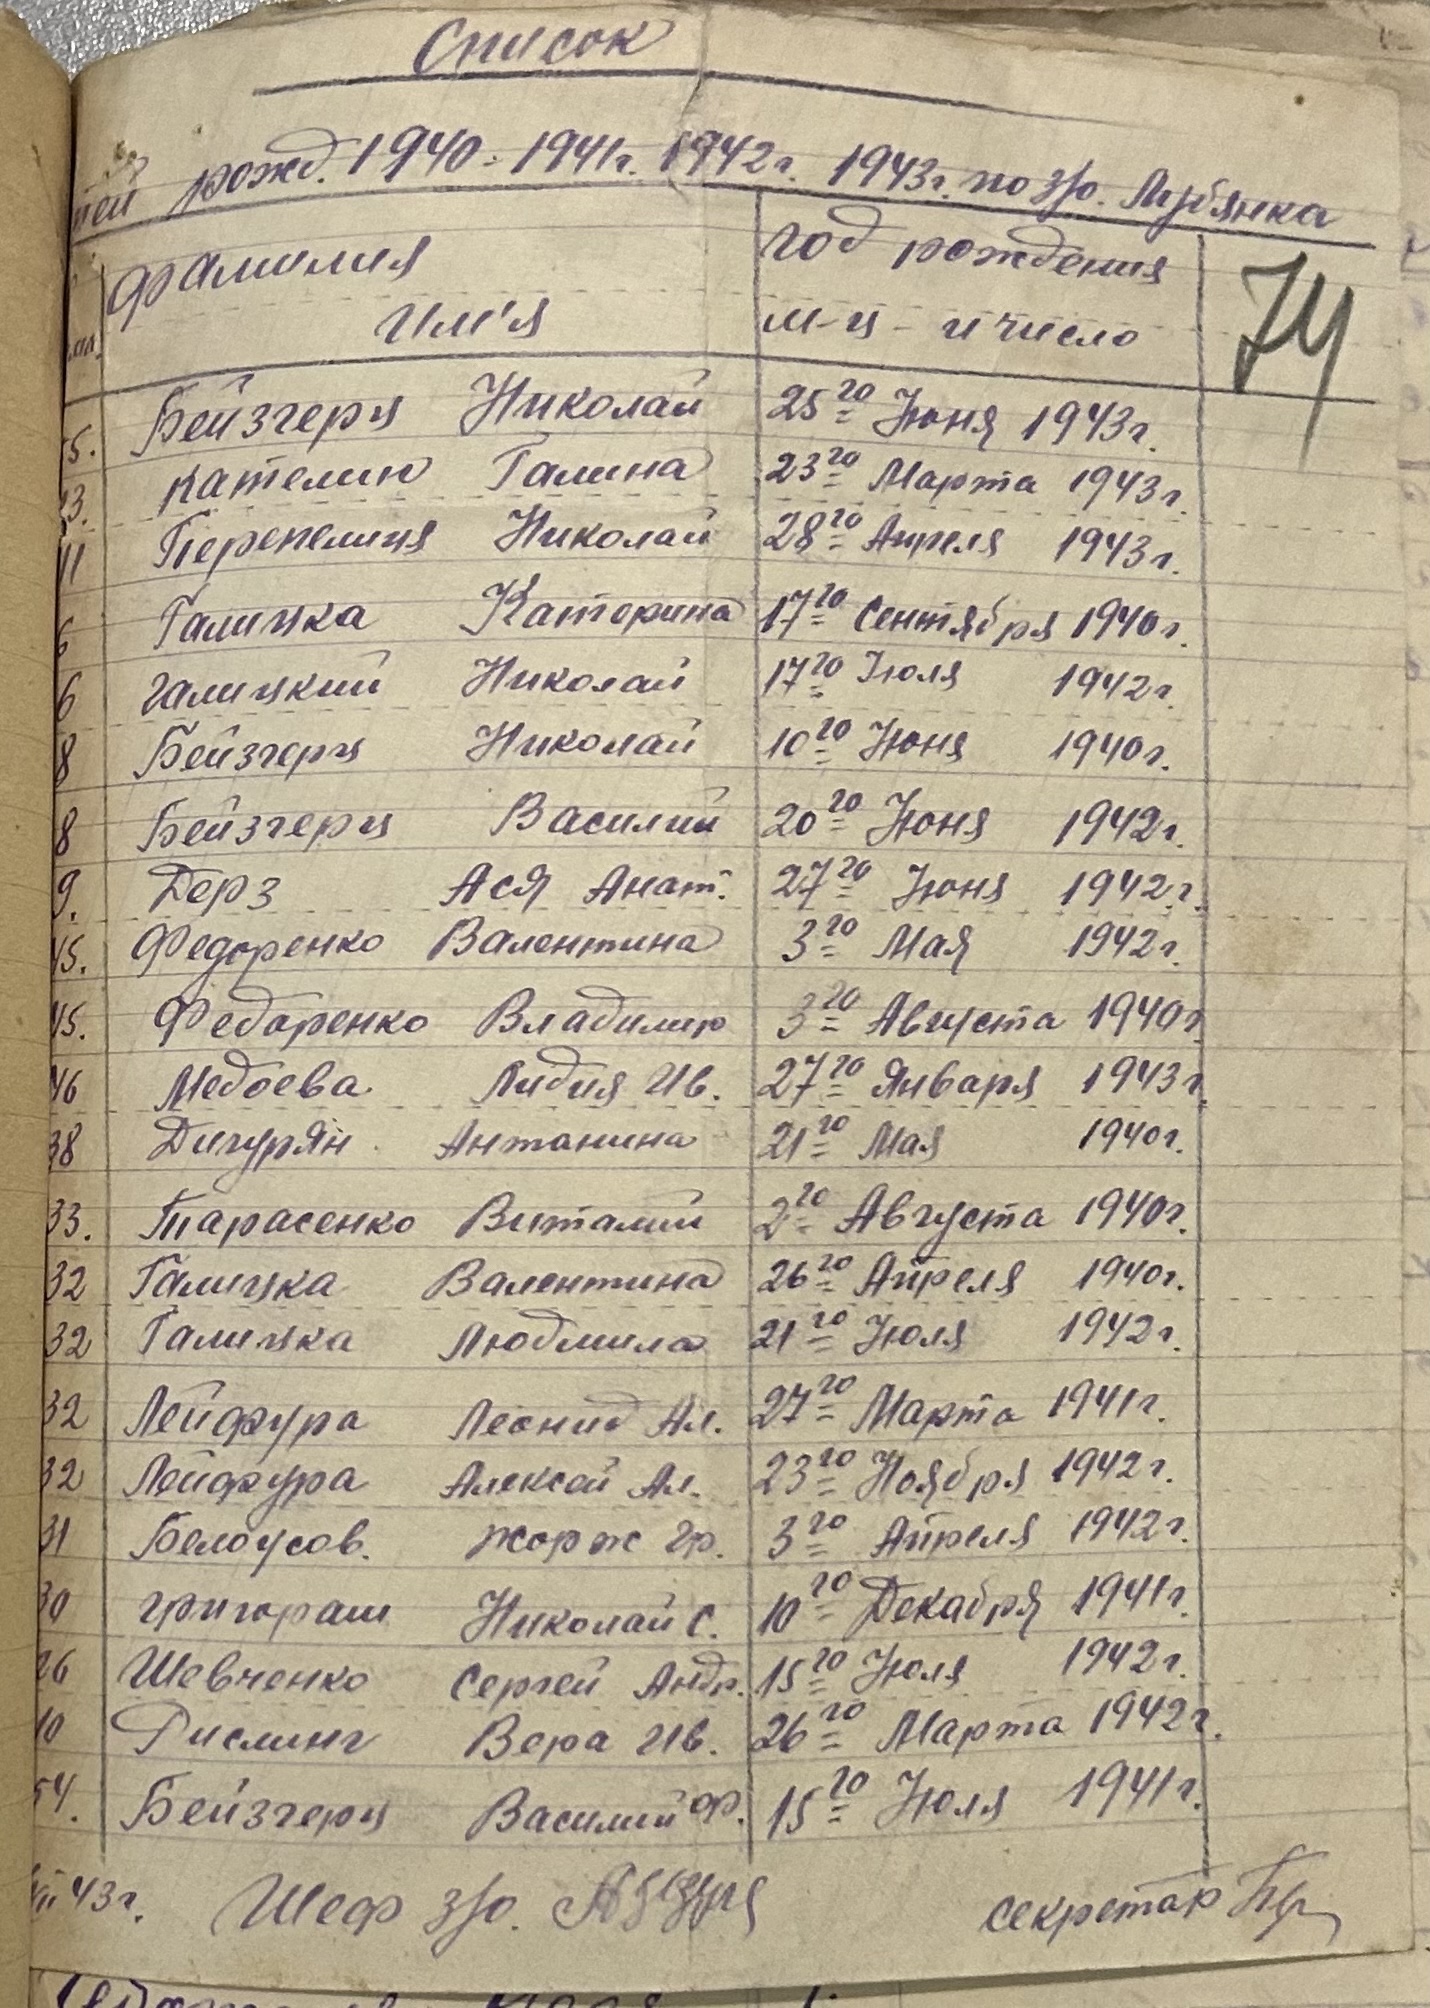 Список
тей рожд. 1940. 1941г. 1942г. 1943г. по з/о. Лубянка
Фамилия Им'я
год рождения м-ц - и число
74
5. Бейзгерц Николай 25го Июня 1943г.
23. Кателин Галина 23го Марта 1943г.
11 Перепелица Николай 28го Апреля 1943г.
6 Галицка Катерина 17го Сентября 1940г.
6 Галицкий Николай 17го Июля 1942г.
8 Бейзгерц Николай 10го Июня 1940г.
8 Бейзгерц Василий 20го Июня 1942г.
9. Дерз Ася Анат. 27го Июня 1942г.
45. Федоренко Валентина 3го Мая 1942г.
45. Федоренко Владимир 3го Августа 1940г
46 Медоева Лидия Ив. 27го Января 1943г.
38 Дигурян Антонина 21го Мая 1940г.
33. Тарасенко Виталий 2го Августа 1940г.
32 Галицка Валентина 26го Апреля 1940г.
32 Галицка Людмила 21го Июля 1942г.
32 Лейфура Леонид Ал. 27го Марта 1941г.
32 Лейфура Алексей Ал. 23го Ноября 1942г.
31 Белоусов. Жорж Гр. 3го Апреля 1942г.
30 Григораш Николай С. 10го Декабря 1941г.
26 Шевченко Сергей Андр. 15го Июля 1942г.
10 Рислинг Вера Ив. 26го Марта 1942г.
54. Бейзгерц Василий Ф. 15го Июля 1941г.
43г. Шеф з/о. секретар